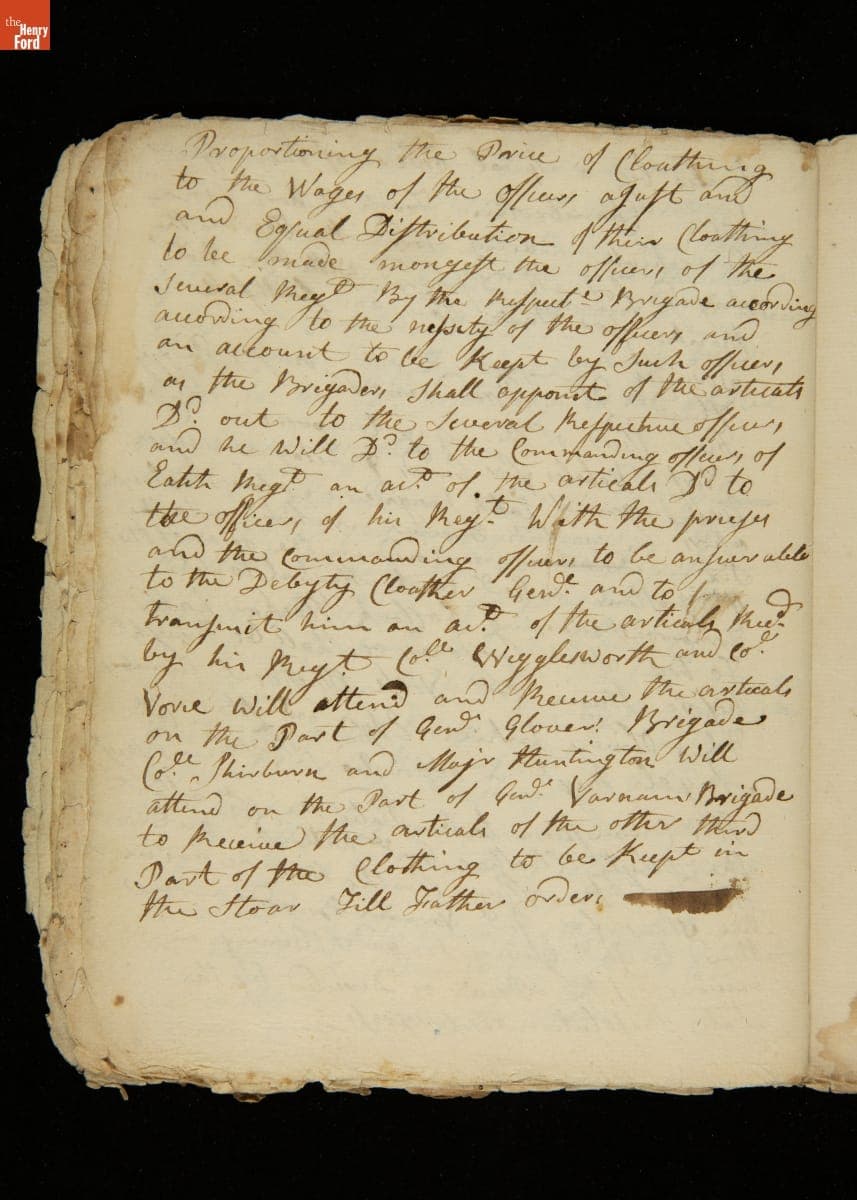 the
Henry
Ford
Proportioning the Price of Cloathing
to the Wages of the officers a Just and
and Equal Distribution of their Cloathing
to be made mongest the officers of the
Several Regt By the Respecte Brigade according
according to the nessity of the officers and
an account to be Keept by Such officers
as the Brigaders Shall appoint of the articals
Dd out to the Several Respective officers
and he Will Dd to the Commanding officers of
Eatch Regt an act of the articals Dd to
the officers of his Regt With the prices
and the Commanding officers to be answerable
to the Debyty Cloather Genl and to
transmit him an act of the articals Recd
by his Regt Coll Wigglesworth and Coll
Vose will attend and Receive the articals
on the Part of Genl Glovers Brigade
Coll Shirburn and Majr Huntington Will
attend on the Part of Genl Varnam Brigade
to Receive the articals of the other third
Part of the Clothing to be Keept in
the Stoar Till Father orders